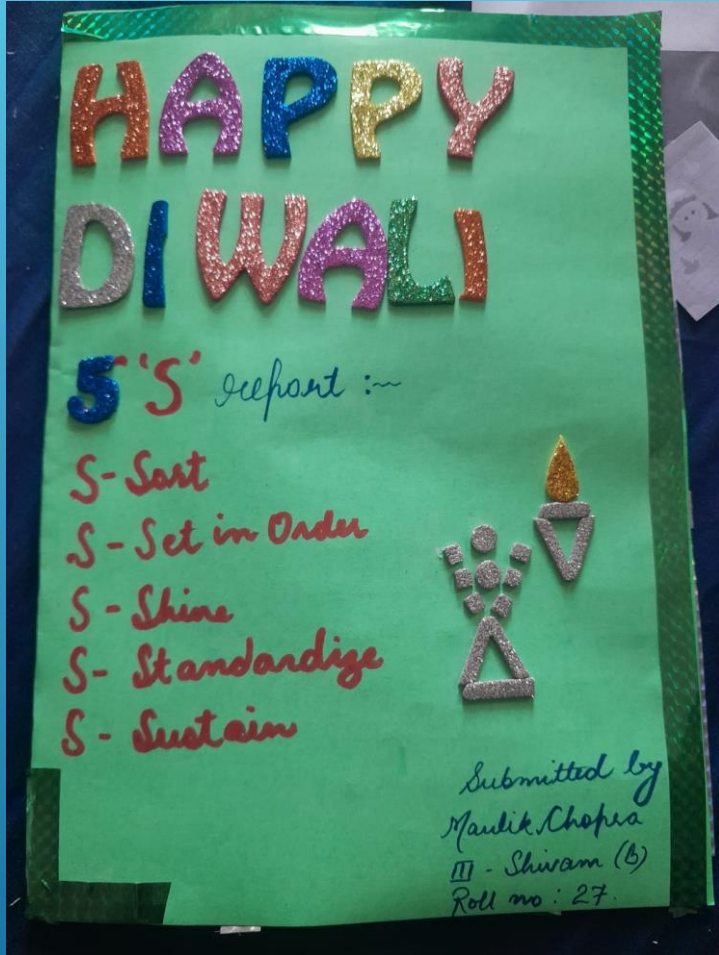 HAPPY
DIWALI
5 'S' report :~
S - Sort
S - Set in Order
S - Shine
S - Standardize
S - Sustain
Submitted by
Maulik Chopra
III - Shivam (B)
Roll no : 27.